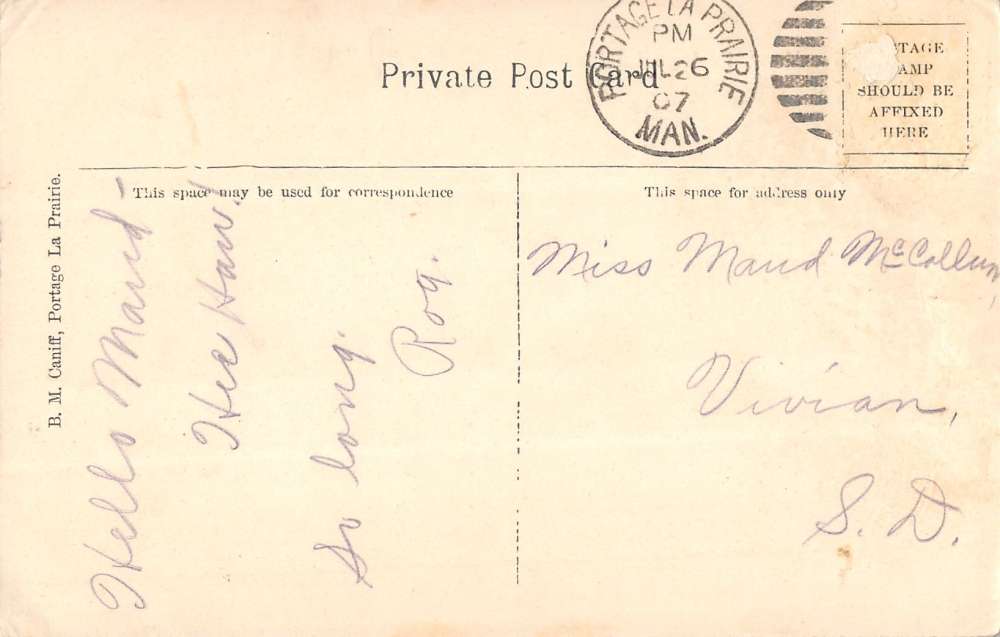 Private Post Card
PORTAGE LA PRAIRIE
PM
JUL 26
07
MAN.
TAGE
AMP
SHOULD BE
AFFIXED
HERE
B. M. Caniff, Portage La Prairie.
This space may be used for correspondence
Hello Maud –
Hee Haw!
So long.
Roy.
This space for address only
Miss Maud McCollum,
Vivian,
S. D.